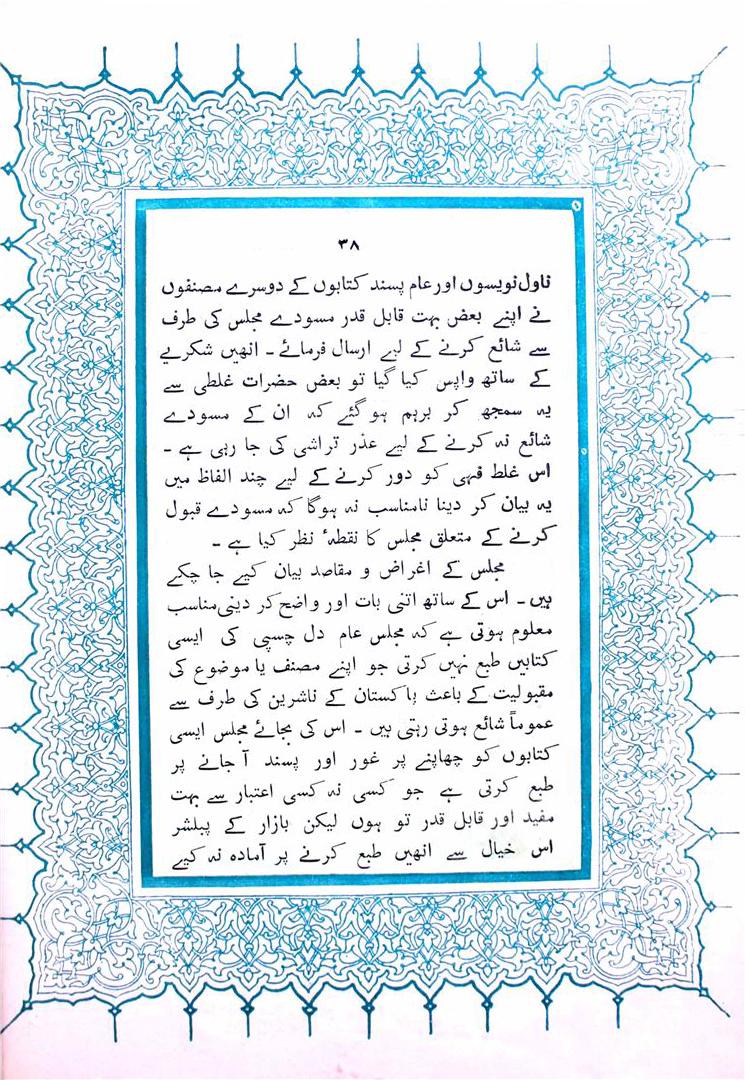 ۳۸
ناول نویسوں اور عام پسند کتابوں کے دوسرے مصنفوں
نے اپنے بعض بہت قابل قدر مسودے مجلس کی طرف
سے شائع کرنے کے لیے ارسال فرمائے ۔ انھیں شکریے
کے ساتھ واپس کیا گیا تو بعض حضرات غلطی سے
یہ سمجھ کر برہم ہو گئے کہ ان کے مسودے
شائع نہ کرنے کے لیے عذر تراشی کی جا رہی ہے ۔
اس غلط فہمی کو دور کرنے کے لیے چند الفاظ میں
یہ بیان کر دینا نامناسب نہ ہوگا کہ مسودے قبول
کرنے کے متعلق مجلس کا نقطۂ نظر کیا ہے ۔
مجلس کے اغراض و مقاصد بیان کیے جا چکے
ہیں ۔ اس کے ساتھ اتنی بات اور واضح کر دینی مناسب
معلوم ہوتی ہے کہ مجلس عام دل چسپی کی ایسی
کتابیں طبع نہیں کرتی جو اپنے مصنف یا موضوع کی
مقبولیت کے باعث پاکستان کے ناشرین کی طرف سے
عموماً شائع ہوتی رہتی ہیں ۔ اس کی بجائے مجلس ایسی
کتابوں کو چھاپنے پر غور اور پسند آ جانے پر
طبع کرتی ہے جو کسی نہ کسی اعتبار سے بہت
مفید اور قابل قدر تو ہوں لیکن بازار کے پبلشر
اس خیال سے انھیں طبع کرنے پر آمادہ نہ کیے